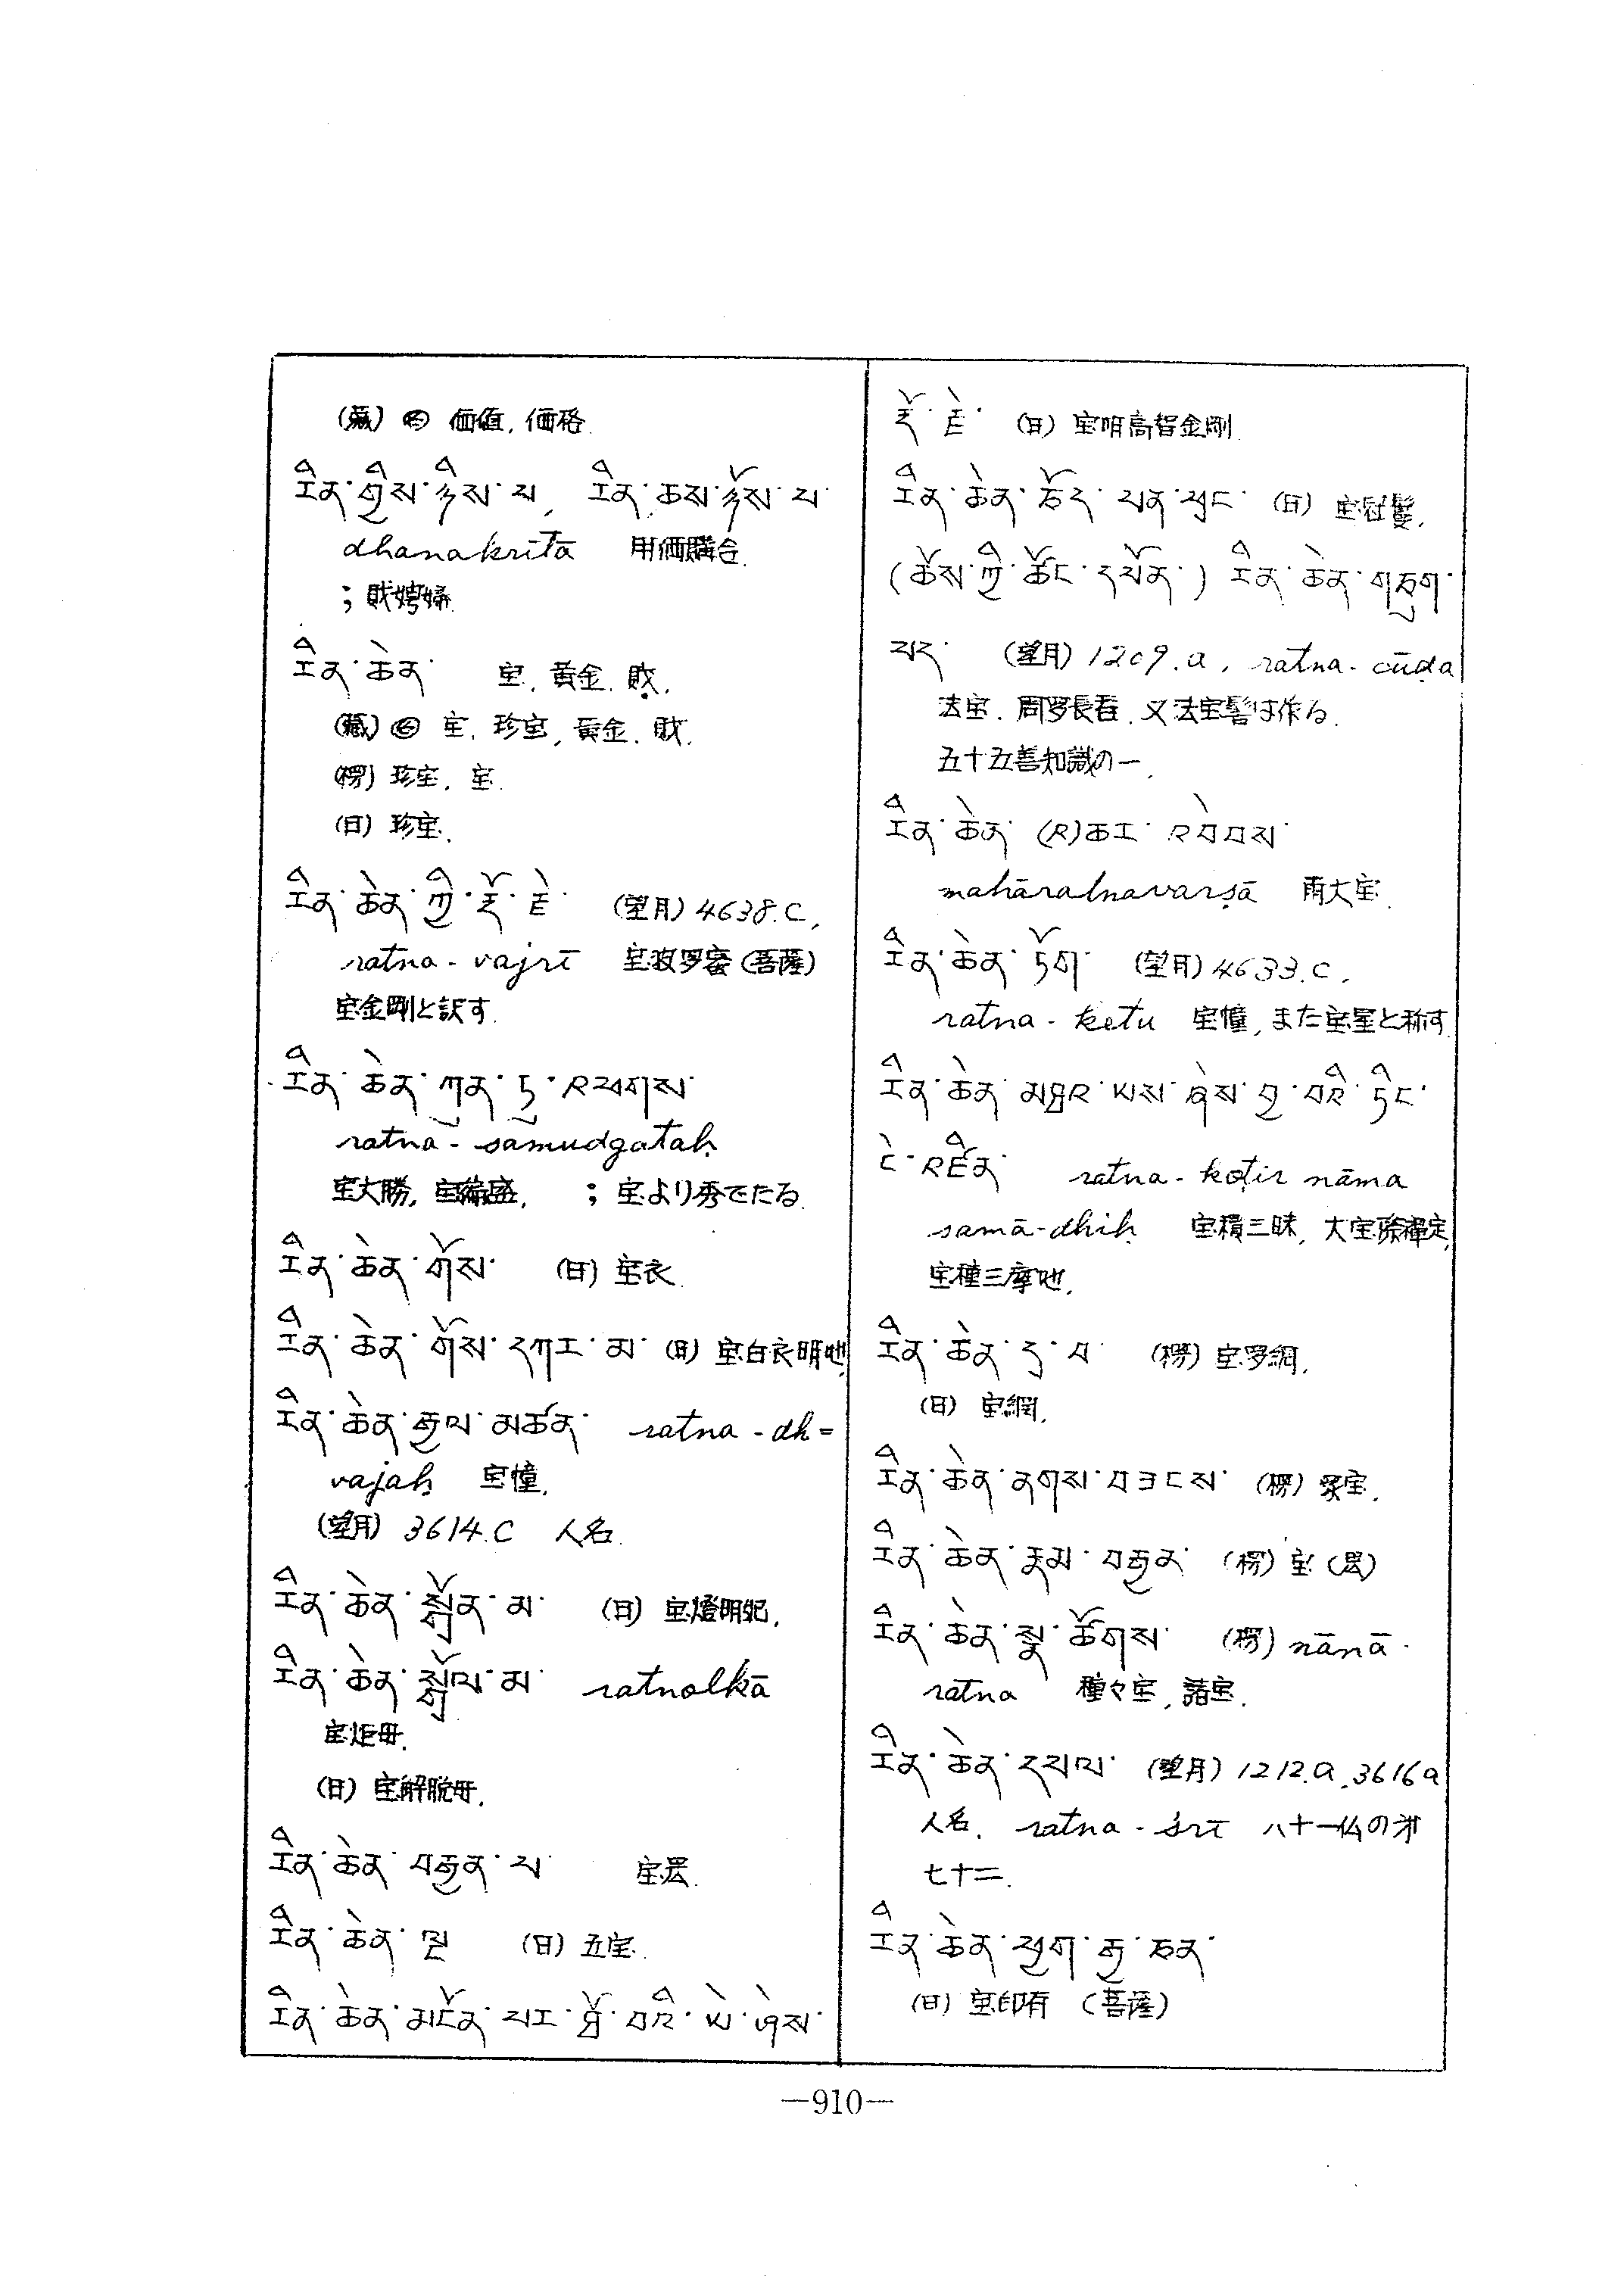 (蔵) ㊁ 価値, 価格.
རིན་གྱིས་ཉིས་པ, རིན་ཆས་ཉོས་པ་
dhanakrītā 用価購合.
; 財娉婦.
རིན་ཆེན་ 宝, 黄金, 財,
(蔵) 宝, 珍宝, 黄金, 財,
(楞) 珍宝, 宝.
(日) 珍宝,
རིན་ཆེན་ཀྱི་རྡོ་རྗེ་ (望月) 4638.C,
ratna - vajrī 宝波罗蜜 (菩薩)
宝金剛と訳す.
རིན་ཆེན་ཀུན་ཏུ་འཕགས་
ratna - samudgataḥ
宝大勝, 宝編盛, ; 宝より秀でたる.
རིན་ཆེན་གོས་ (日) 宝衣.
རིན་ཆེན་གོས་དཀར་མ་ (日) 宝白衣明妃,
རིན་ཆེན་རྒྱལ་མཚན་ ratna - dh =
vajaḥ 宝憧,
(望月) 3614.C 人名.
རིན་ཆེན་སྒྲོན་མ་ (日) 宝燈明妃,
རིན་ཆེན་སྒྲོལ་མ་ ratnolkā
宝炬母,
(日) 宝解脱母,
རིན་ཆེན་བརྒྱན་པ་ 宝
རིན་ཆེན་ལྔ (日) 五宝.
རིན་ཆེན་མངོན་པར་འཕྲོ་བའི་ཡེ་ཤེས་
རྡོ་རྗེ་ (日) 宝明高智金剛.
རིན་ཆེན་ཅོད་པན་ཕུད་ (日) 宝冠鬘,
(ཆོས་ཀྱི་ཚོང་དཔོན་) རིན་ཆེན་གཙུག་
པད་ (望月) 1209.a, ratna - cūḍa
法宝, 周罗長者, 又法宝髻は作る.
五十五善知識の一,
རིན་ཆེན་ (འ)ཆར་འབེབས་
mahāratnavarṣā 雨大宝.
རིན་ཆེན་ཏོག་ (望月) 4633.C,
ratna - ketu 宝憧, また宝星と称す.
རིན་ཆེན་མཐའ་ཡས་ཞེས་བྱ་བའི་ཏིང་
ངེ་འཛིན་ ratna - koṭir nāma
samā-dhiḥ 宝積三昧, 大宝際禅定,
宝種三摩地,
རིན་ཆེན་དྲ་བ་ (楞) 宝罗網,
(日) 宝網,
རིན་ཆེན་ནགས་བཟངས་ (楞) 聚宝,
རིན་ཆེན་རྣམ་བརྒྱན་ (楞) 宝
རིན་ཆེན་སྣ་ཚོགས་ (楞) nānā -
ratna 種々宝, 諸宝,
རིན་ཆེན་དཔལ་ (望月) 1212.a, 3616a
人名, ratna - śrī 八十一仏の才
七十二.
རིན་ཆེན་ཕྱག་རྒྱ་ཅན་
(日) 宝印有 (菩薩)
—910—